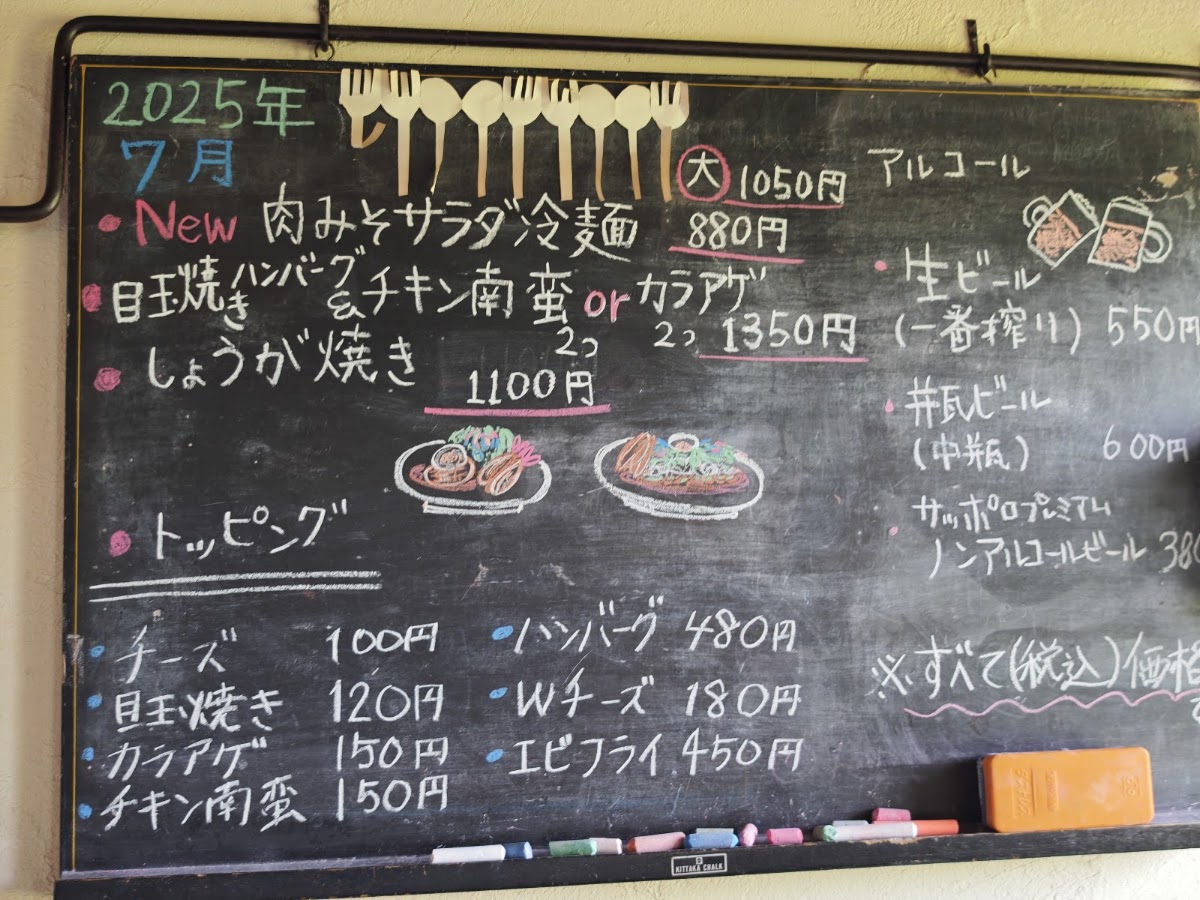 2025年
7月
大 1050円
New 肉みそサラダ冷麺 880円
目玉焼きハンバーグ&チキン南蛮 or カラアゲ
2コ 2コ 1350円
しょうが焼き
1100円
トッピング
チーズ 100円
目玉焼き 120円
カラアゲ 150円
チキン南蛮 150円
ハンバーグ 480円
Wチーズ 180円
エビフライ 450円
アルコール
生ビール
(一番搾り) 550円
瓶ビール
(中瓶) 600円
サッポロプレミアム
ノンアルコールビール 380
※すべて(税込)価格
KITTAKA CHALK